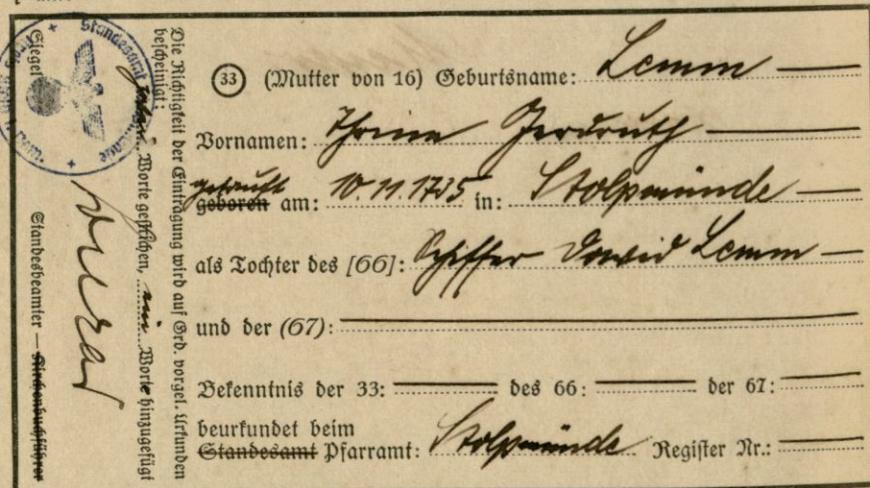 (33) (Mutter von 16) Geburtsname: Lemm
Vornamen: Gerdruth
getauft
geboren am: 10.11.1735 in: Stolpmünde
als Tochter des [66]: Schiffer David Lemm
und der (67):
Bekenntnis der 33: des 66: der 67:
beurkundet beim
Standesamt Pfarramt: Stolpmünde Register Nr.:
Die Richtigkeit der Eintragung wird auf Grd. vorgel. Urkunden
bescheinigt:
Worte gestrichen, ein Worte hinzugefügt
Siegel
Standesbeamter – Kirchenbuchführer
Standesamt